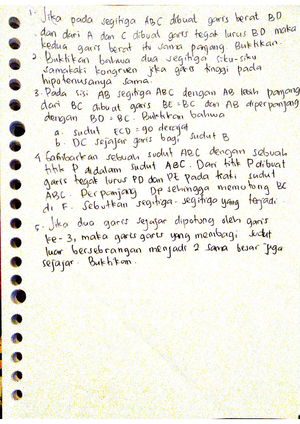 1. Jika pada segitiga ABC dibuat garis berat BD
dan dari A dan C dibuat garis tegak lurus BD maka
kedua garis berat itu sama panjang. Buktikan.
2. Buktikan bahwa dua segitiga siku-siku
samakaki kongruen jika garis tinggi pada
hipotenusanya sama.
3. Pada sisi AB segitiga ABC dengan AB lebih panjang
dari BC dibuat garis BE = BC dan AB diperpanjang
dengan BD = BC. Buktikan bahwa
a. sudut ECD = 90 derajat
b. DC sejajar garis bagi sudut B
4. Gambarkan sebuah sudut ABC dengan sebuah
titik P didalam sudut ABC. Dari titik P dibuat
garis tegak lurus PD dan PE pada kaki sudut
ABC. Perpanjang DP sehingga memotong BC
di F. Sebutkan segitiga-segitiga yang terjadi
5. Jika dua garis sejajar dipotong oleh garis
ke-3, maka garis garis yang membagi sudut
luar berseberangan menjadi 2 sama besar juga
sejajar. Buktikan.